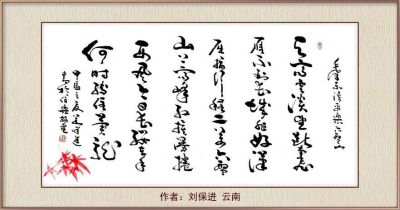 毛泽东清平乐六盘山
天高云淡望断南飞
雁不到长城非好汉
屈指行程二万六盘
山上高峰红旗漫卷
西风今日长缨在手
何时缚住苍龙
作者：刘保进 云南